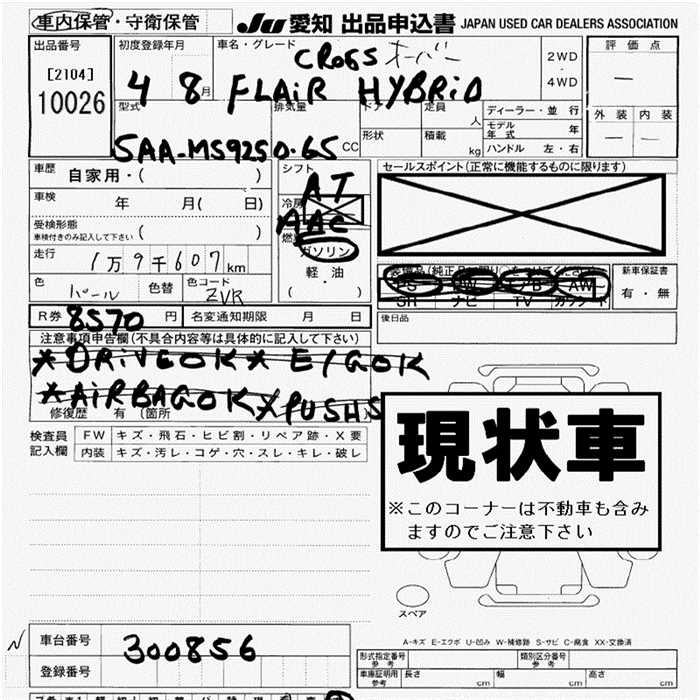 車内保管・守衛保管
JU 愛知 出品申込書 JAPAN USED CAR DEALERS ASSOCIATION
出品番号
[2104]
10026
初度登録年月
4 8月
車名・グレード
CROSS オーバー
FLAiR HYBRiD
2WD
・
4WD
評価点
―
外装 内装
― ―
型式
5AA-MS92S
排気量
0.65 CC
ドア
定員
人
形状
積載
kg
ディーラー・並行
モデル年式 年
ハンドル 左・右
車歴
自家用・( )
車検
年 月( 日)
受検形態
(車検付きのみ記入して下さい) ( )
走行
1万9千607km
色
パール
色替
色コード
ZVR
シフト
AT
冷房
AAC
燃料
ガソリン
軽油
( ・ )
セールスポイント(正常に機能するものに限ります)
PS PW エアB AW
SR ナビ TV
新車保証書
有・無
後日品
R券 8570 円
名変通知期限 月 日
注意事項申告欄(不具合内容等は具体的に記入して下さい)
*DRiVEOK* E/GOK
*AiRBAGOK XPUSHS
修復歴 有(箇所
検査員記入欄
FW キズ・飛石・ヒビ割・リペア跡・X要
内装 キズ・汚レ・コゲ・穴・スレ・キレ・破レ
現状車
※このコーナーは不動車も含み
ますのでご注意下さい
スペア
A-キズ E-エクボ U-凹み W-補修跡 S-サビ C-腐食 XX-交換済
車台番号
300856
登録番号
形式指定番号
参考
類別区分番号
参考
車庫証明用
参考
長さ cm
幅 cm
高さ cm